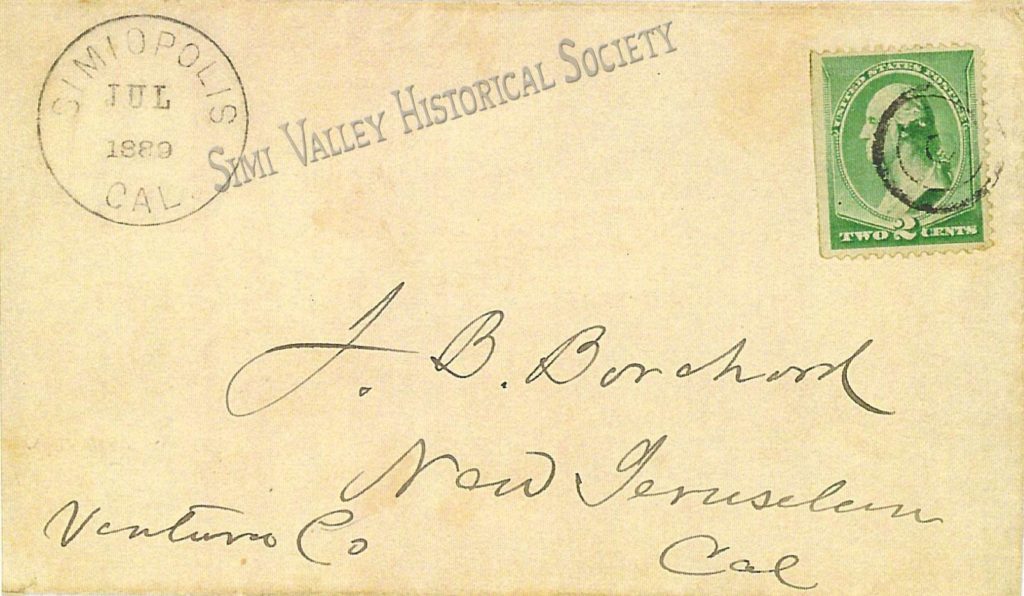 SIMIOPOLIS
JUL
1889
CAL.
SIMI VALLEY HISTORICAL SOCIETY
UNITED STATES POSTAGE
TWO 2 CENTS
J. B. Borchard
New Jerusalem
Ventura Co
Cal